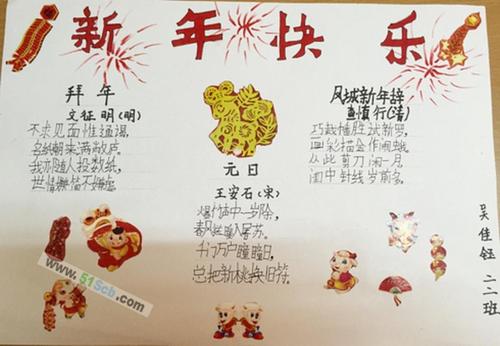 新年快乐
拜年
文征明(明)
不求见面惟通谒,
名纸朝来满敝庐
我亦随人投数纸,
世情嫌简不嫌虚
元日
王安石(宋)
爆竹声中一岁除,
春风送暖入屠苏。
千门万户曈曈日,
总把新桃换旧符。
凤城新年辞
查慎行(清)
巧裁幡胜试新罗,
画彩描金作闹蛾
从此剪刀闲一月
闺中针线岁前多。
吴佳钰
二二班
www.51Scb.com